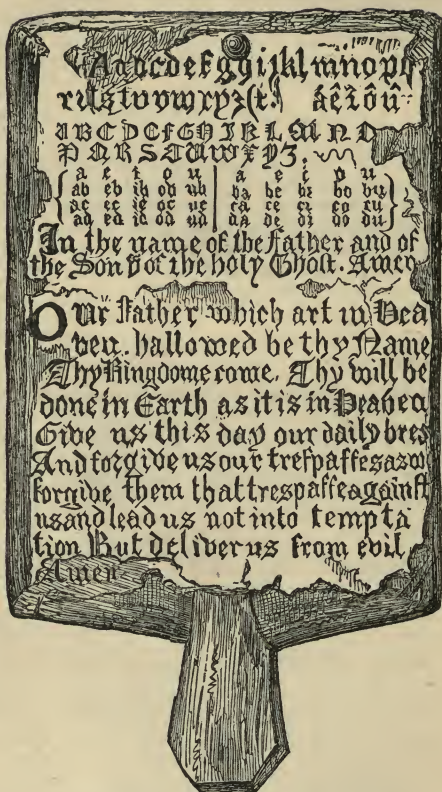 Aabcdefghijklmnopq
rzsſtuvwxyz&c. áêîôû
ABCDEFGHIJKLMNO
PQRSTUWXYZ.
a e i o u | a e i o u
ab eb ib ob ub | ba be bi bo bu
ac ec ic oc uc | ca ce ci co cu
ad ed id od ud | da de di do du
In the name of the Father and of
the Son & of the holy Ghost. Amen
Our Father, which art in Hea
ven. hallowed be thy Name
Thy Kingdome come. Thy will be
done in Earth as it is in Heaven
Give us this day our daily bred
And forgive us our treſpaſſes as we
forgive them that trespaſſe againſt
us and lead us not into tempta
tion But deliver us from evil
Amen